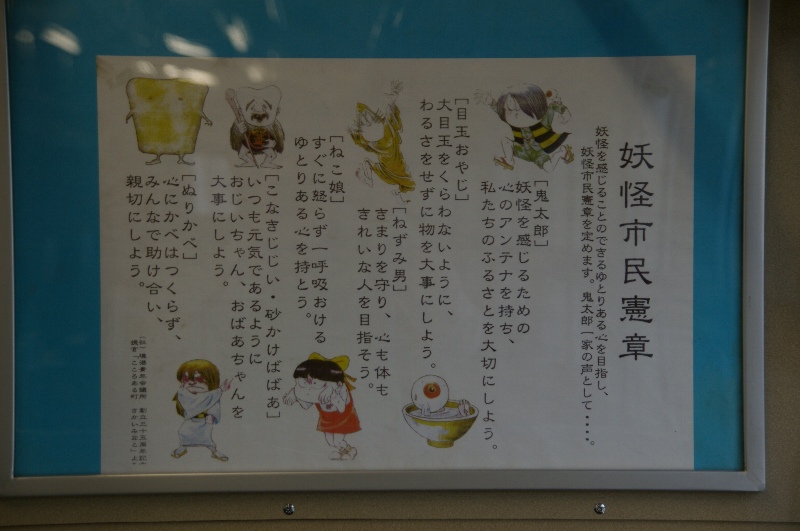 妖怪市民憲章
妖怪を感じることのできるゆとりある心を目指し、
妖怪市民憲章を定めます。鬼太郎一家の声として・・・・。
[鬼太郎]
妖怪を感じるための
心のアンテナを持ち、
私たちのふるさとを大切にしよう。
[目玉おやじ]
大目玉をくらわないように、
わるさをせずに物を大事にしよう。
[ねずみ男]
きまりを守り、心も体も
きれいな人を目指そう。
[ねこ娘]
すぐに怒らず一呼吸おける
ゆとりある心を持とう。
[こなきじじい・砂かけばばあ]
いつも元気であるように
おじいちゃん、おばあちゃんを
大事にしよう。
[ぬりかべ]
心にかべはつくらず、
みんなで助け合い、
親切にしよう。
(社)境港青年会議所 創立三十五周年記
提言「こころある町 さかいみなと」よ